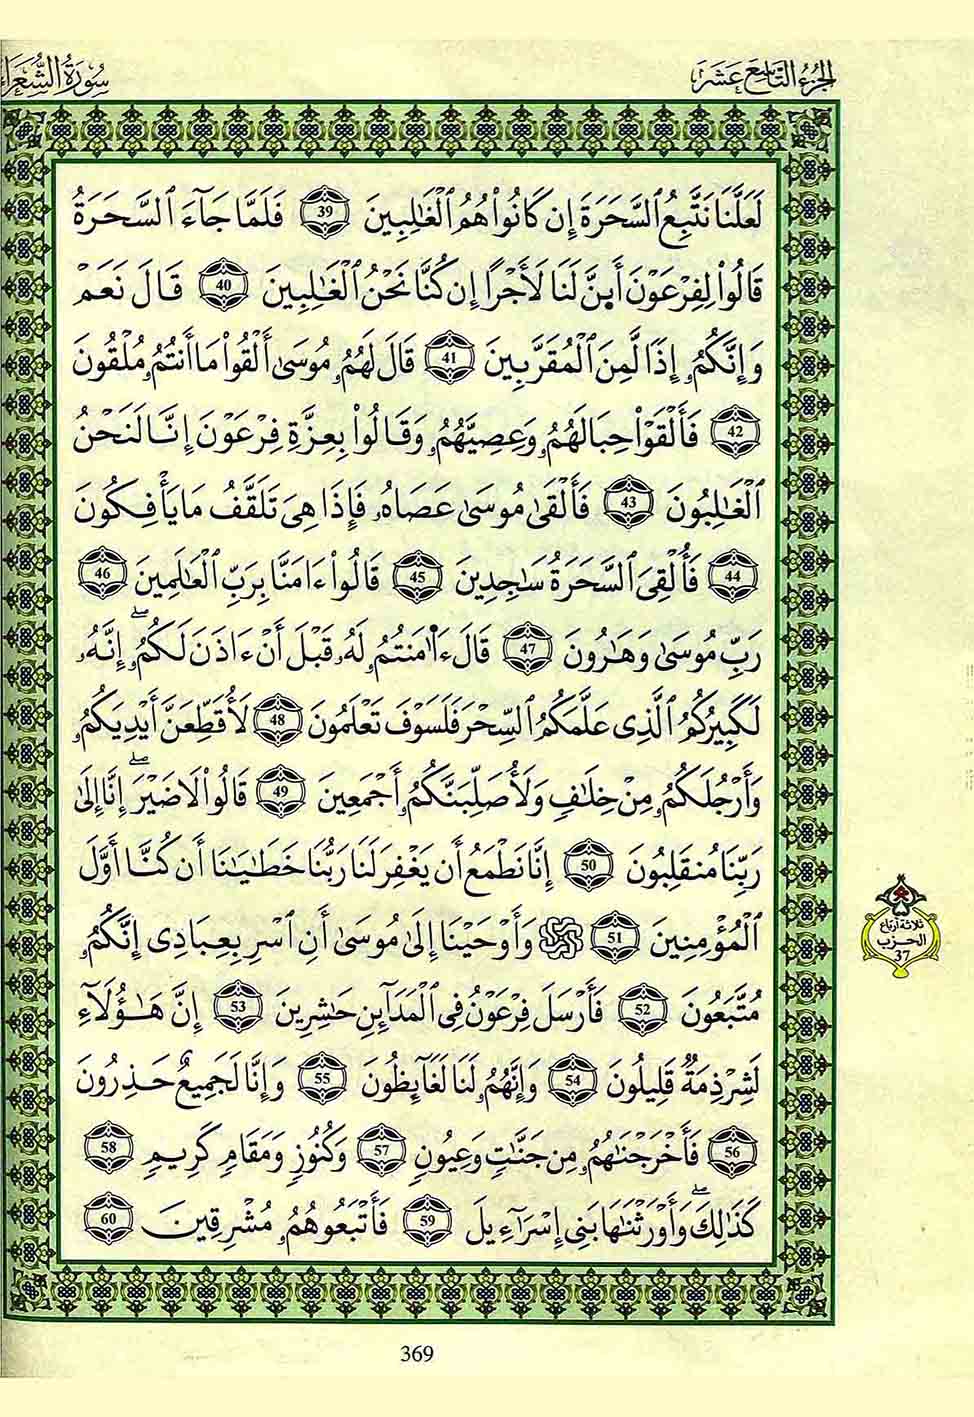 سُورَةُ الشُّعَرَاءِ
الجُزْءُ التَّاسِعَ عَشَرَ
لَعَلَّنَا نَتَّبِعُ اُ۬لسَّحَرَةَ إِن كَانُواْ هُمُ اُ۬لْغَٰلِبِينَ 39 فَلَمَّا جَآءَ اَ۬لسَّحَرَةُ
قَالُواْ لِفِرْعَوْنَ أَيِنَّ لَنَا لَأَجْرًا إِن كُنَّا نَحْنُ اُ۬لْغَٰلِبِينَ 40 قَالَ نَعَمْ
وَإِنَّكُمُۥ إِذًا لَّمِنَ اَ۬لْمُقَرَّبِينَ 41 قَالَ لَهُمُۥ مُوسَىٰ أَلْقُواْ مَا أَنتُمُۥ مُلْقُونَ
42 فَأَلْقَوْاْ حِبَالَهُمُۥ وَعِصِيَّهُمُۥ وَقَالُواْ بِعِزَّةِ فِرْعَوْنَ إِنَّا لَنَحْنُ
اُ۬لْغَٰلِبُونَ 43 فَأَلْقَىٰ مُوسَىٰ عَصَاهُۥ فَإِذَا هِىَ تَلَقَّفُ مَا يَأْفِكُونَ
44 فَأُلْقِىَ اَ۬لسَّحَرَةُ سَٰجِدِينَ 45 قَالُواْ ءَامَنَّا بِرَبِّ اِ۬لْعَٰلَمِينَ 46
رَبِّ مُوسَىٰ وَهَٰرُونَ 47 قَالَ ءَا۬مَنتُمُۥ لَهُۥ قَبْلَ أَنْ ءَاذَنَ لَكُمُۥ إِنَّهُۥ
لَكَبِيرُكُمُ اُ۬لَّذِى عَلَّمَكُمُ اُ۬لسِّحْرَ فَلَسَوْفَ تَعْلَمُونَ 48 لَأُقَطِّعَنَّ أَيْدِيَكُمُۥ
وَأَرْجُلَكُمُۥ مِنْ خِلَٰفٍ وَلَأُصَلِّبَنَّكُمُۥ أَجْمَعِينَ 49 قَالُواْ لَا ضَيْرَ إِنَّا إِلَىٰ
رَبِّنَا مُنقَلِبُونَ 50 إِنَّا نَطْمَعُ أَن يَغْفِرَ لَنَا رَبُّنَا خَطَٰيَٰنَا أَن كُنَّا أَوَّلَ
اَ۬لْمُؤْمِنِينَ 51 وَأَوْحَيْنَا إِلَىٰ مُوسَىٰ أَنِ اِ۪سْرِ بِعِبَادِى إِنَّكُمُۥ
مُتَّبَعُونَ 52 فَأَرْسَلَ فِرْعَوْنُ فِى اِ۬لْمَدَآئِنِ حَٰشِرِينَ 53 إِنَّ هَٰؤُلَآءِ
لَشِرْذِمَةٌ قَلِيلُونَ 54 وَإِنَّهُمُۥ لَنَا لَغَآئِظُونَ 55 وَإِنَّا لَجَمِيعٌ حَذِرُونَ
56 فَأَخْرَجْنَٰهُمُۥ مِن جَنَّٰتٍ وَعِيُونٍ 57 وَكُنُوزٍ وَمَقَامٍ كَرِيمٍ 58
كَذَٰلِكَ وَأَوْرَثْنَٰهَا بَنِى إِسْرَآءِيلَ 59 فَأَتْبَعُوهُمُۥ مُشْرِقِينَ 60
ثلاثة أرباع
الحزب
37
369